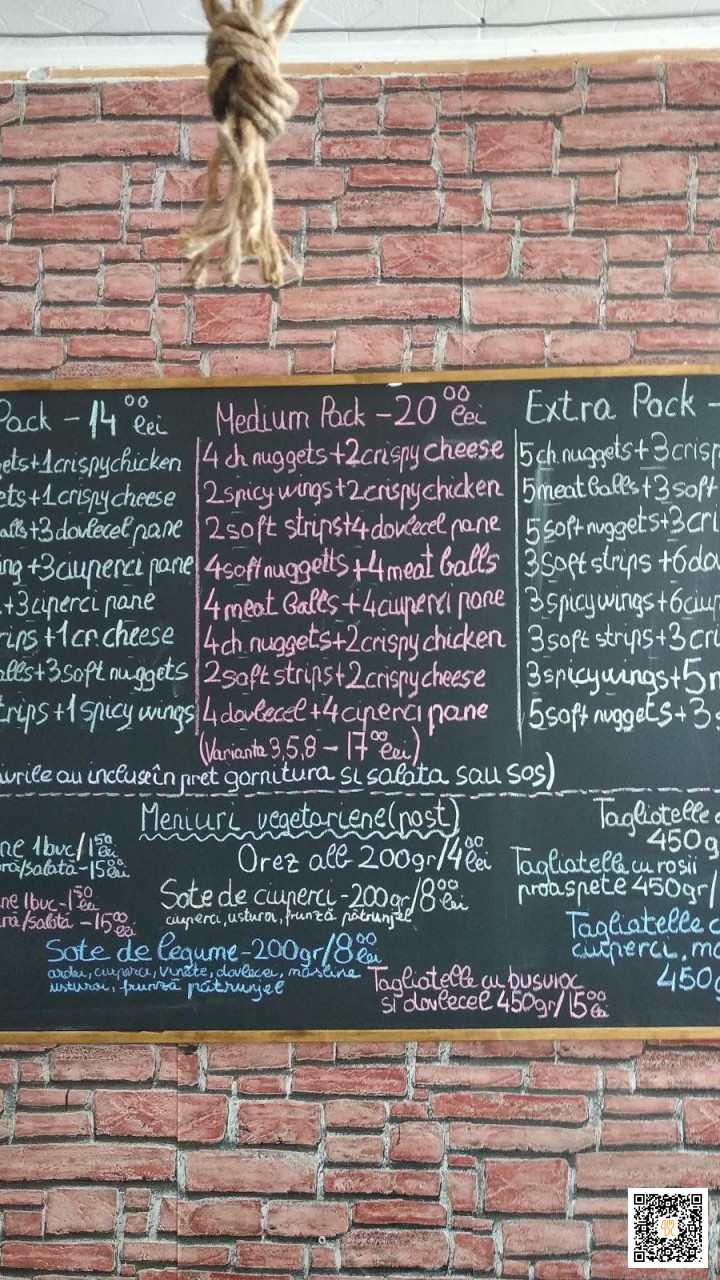 Pack - 14 00 lei
ets+1crispychicken
ets+1crispy cheese
alls+3 dovlecel pane
ng +3ciuperci pane
.+3ciperci pane
rips +1cr.cheese
alls+3soft nuggets
trips +1spicy wings
Medium Pack - 20 00 lei
4 ch nuggets+2crispy cheese
2spicy wings+2crispy chicken
2 soft strips+4 dovlecel pane
4soft nuggetts +4meat balls
4 meat Balls +4ciuperci pane
4ch nuggets+2crispy chicken
2soft strips+2crispy cheese
4dovlecel +4 ciperci pane
(Varianta 3,5,8 - 17 00 lei)
Extra Pack -
5ch nuggets+3crisp
5meat balls+3soft
5soft nuggets+3cri
3Soft strips +6dov
3spicywings+6ciup
3soft strips+3cr
3spicywings+5m
5soft nuggets+3s
au incluse în pret garnitura si salata sau sos)
Meniuri vegetariene(post)
ne 1buc/1 50 lei
ră/salata - 15 00 lei
ne 1buc-1 50 lei
ră/salată - 15 00 lei
Orez alb 200gr/4 00 lei
Sote de ciuperci-200gr/8 00 lei
ciuperci, usturoi, frunză pătrunjel
Sote de legume-200gr/8 00 lei
ardei, ciuperci, vinete, dovlecei, masline
usturoi, frunză pătrunjel
Tagliatelle cu busuioc
si dovlecel 450gr/15 00 lei
Tagliatelle c
450g
Tagliatelle cu rosii
proaspete 450gr/
Tagliatelle c
ciuperci, ma
450g